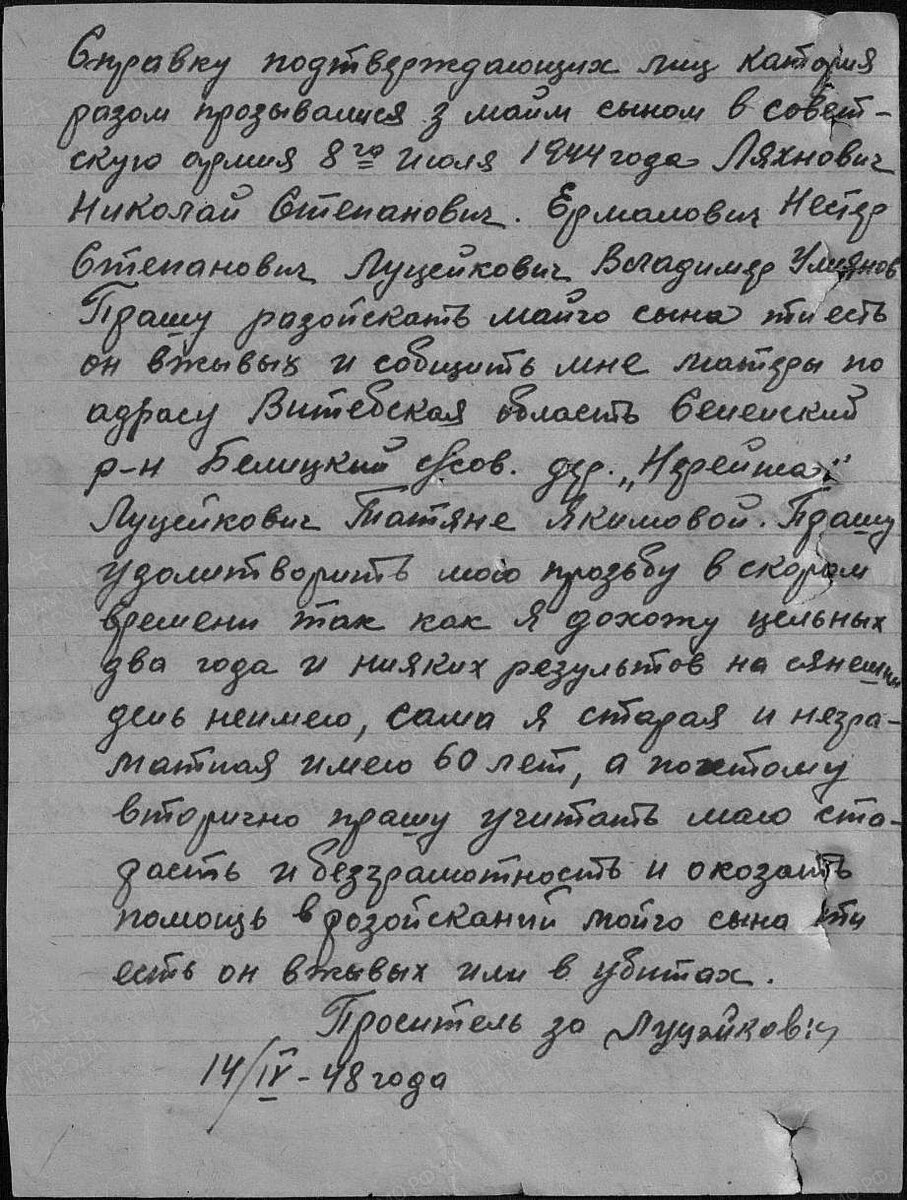 Справку подтверждающих лиц катория
разом прозывалися з маим сыном в совет-
скую армия 8го июля 1944 года Ляхнович
Николай Степанович. Ермалович Нестер
Степанович Луцейкович Владимер
Прашу разойскать майго сына ти есть
он вжывых и собщить мне матеры по
адрасу Витебская область Сененский
р-н Белицкий с/сов. дер. „Нерейша"
Луцейкович Татяне Якимовой. Прашу
удолитворить мою прозьбу в скором
времени так как я дохожу цельных
два года и нияких результов на сянешни
день неимею, сама я старая и негра-
матная имею 60 лет, а поэтому
вторично прашу учитать маю ста-
расть и безграмотность и оказать
помощь в розойсканий мойго сына ти
есть он вжывых или в убитах.
Проситель за Луцейкович
14/IV-48 года